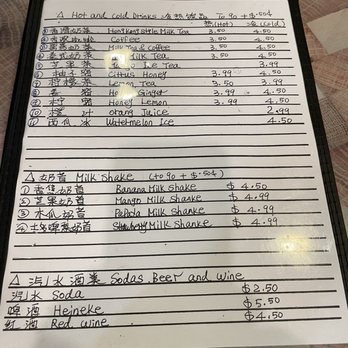 △ Hot and Cold Drinks 冷热饮品 To go + $.50¢
热 (Hot) 冷 (Cold)
Hong Kong style Milk Tea 3.50 4.50
Coffee 3.50 4.50
Milk Tea & Coffee 3.50 4.50
Milk Tea 3.50 4.50
Tea 3.99
⑥ 柚子蜜 Cittus Honey 3.99 4.50
Lemon Tea 3.50 4.50
Ginger 3.99 4.50
⑨ 柠 蜜 Honey Lemon 3.99 4.50
⑩ 橙 汁 Otang Juice 2.99
⑪ 西瓜 冰 Watetmelon Ice 4.50
△ 奶昔 Milk Shake (to go + $.50¢)
① 香蕉奶昔 Banana Milk Shake $ 4.50
② 芒果奶昔 Mango Milk Shanke $ 4.99
③ 木瓜奶昔 PaPala Milk Shanke $ 4.99
④ 士多啤梨奶昔 Milk Shanke $ 4.99
△ 汽水 酒类 Sodas, Beer and Wine
汽水 Soda $2.50
啤酒 Heineke $5.50
红酒 Red Wine $4.50